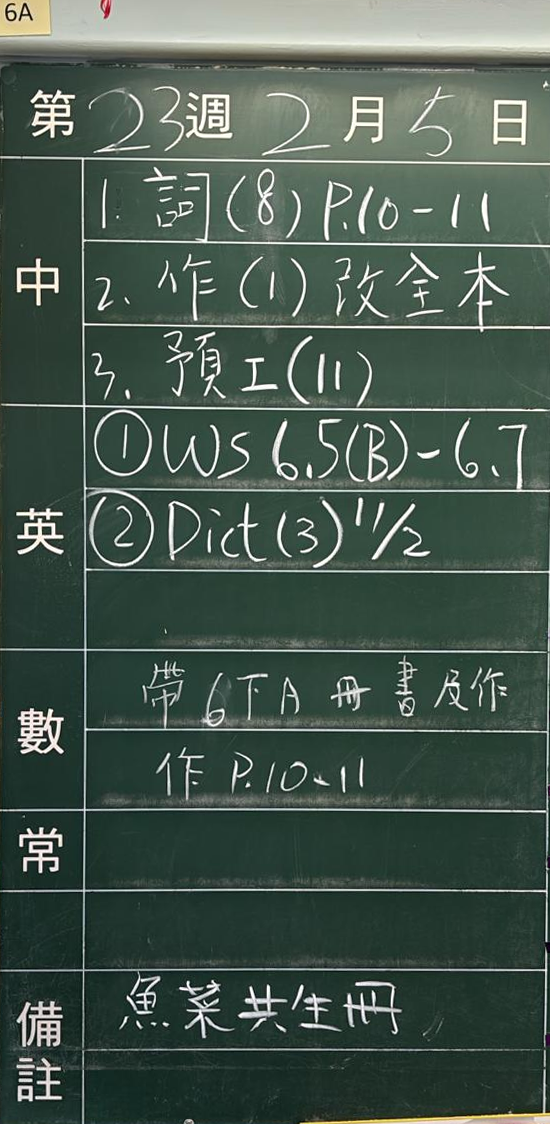 6A
第23週 2月5日
中
1. 詞(8) P.10-11
2. 作(1) 改全本
3. 預工(11)
英
①WS 6.5(B)-6.7
②Dict(3) 11/2
數
帶6下A冊書及作
作 P.10-11
常
備註
魚菜共生冊